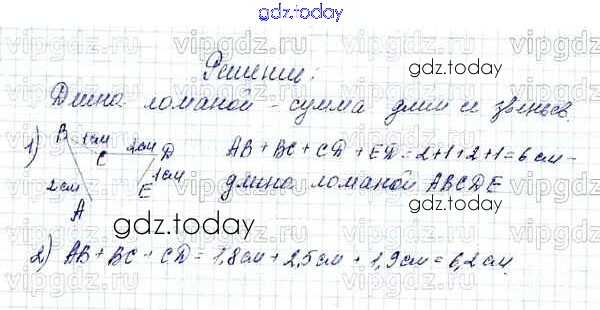 gdz.today
Решение:
gdz.today
Длина ломаной - сумма длин её звеньев.
1) B 1см C 2см D 1см E 2см A
AB + BC + CD + ED = 2+1+2+1 = 6 см -
длина ломаной ABCDE
gdz.today
gdz.today
2) AB + BC + CD = 1,8см + 2,5см + 1,9см = 6,2см.